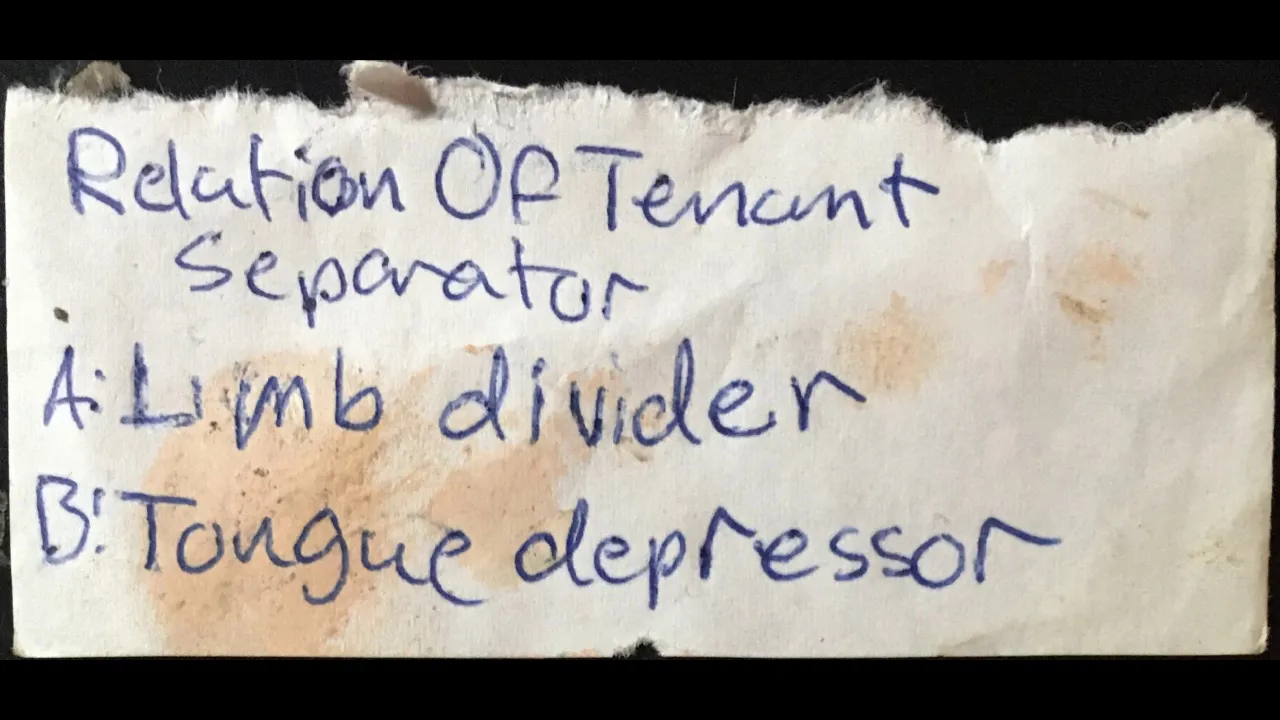 Relation Of Tenant
Separator
A: Limb divider
B: Tongue depressor